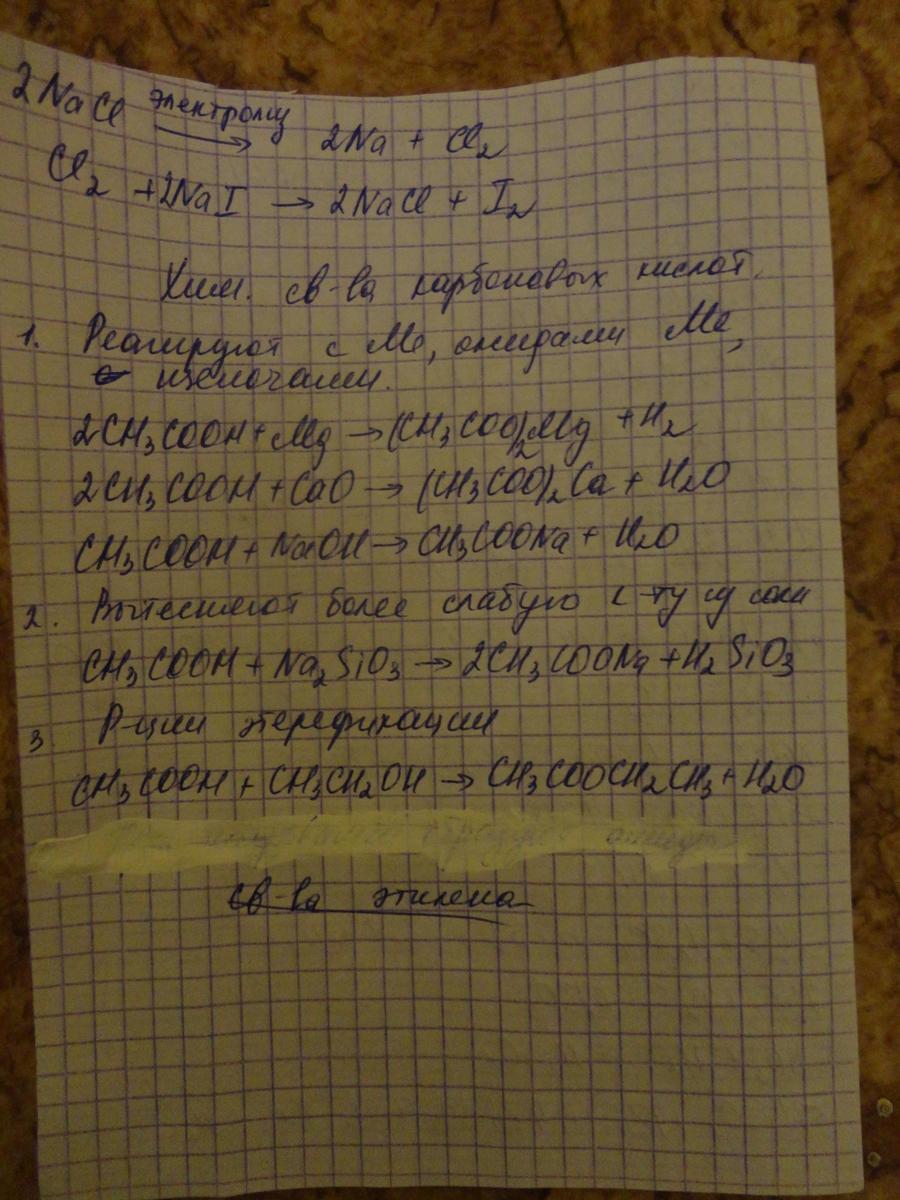 2NaCl электролиз → 2Na + Cl₂
Cl₂ + 2NaI → 2NaCl + I₂
Хим. св-ва карбоновых кислот.
1. Реагируют с Ме, оксидами Ме,
щелочами.
2CH₃COOH + Mg → (CH₃COO)₂Mg + H₂
2CH₃COOH + CaO → (CH₃COO)₂Ca + H₂O
CH₃COOH + NaOH → CH₃COONa + H₂O
2. Вытесняют более слабую к-ту из соли
CH₃COOH + Na₂SiO₃ → 2CH₃COONa + H₂SiO₃
3 Р-ции этерефикации
CH₃COOH + CH₃CH₂OH → CH₃COOCH₂CH₃ + H₂O
св-ва этилена